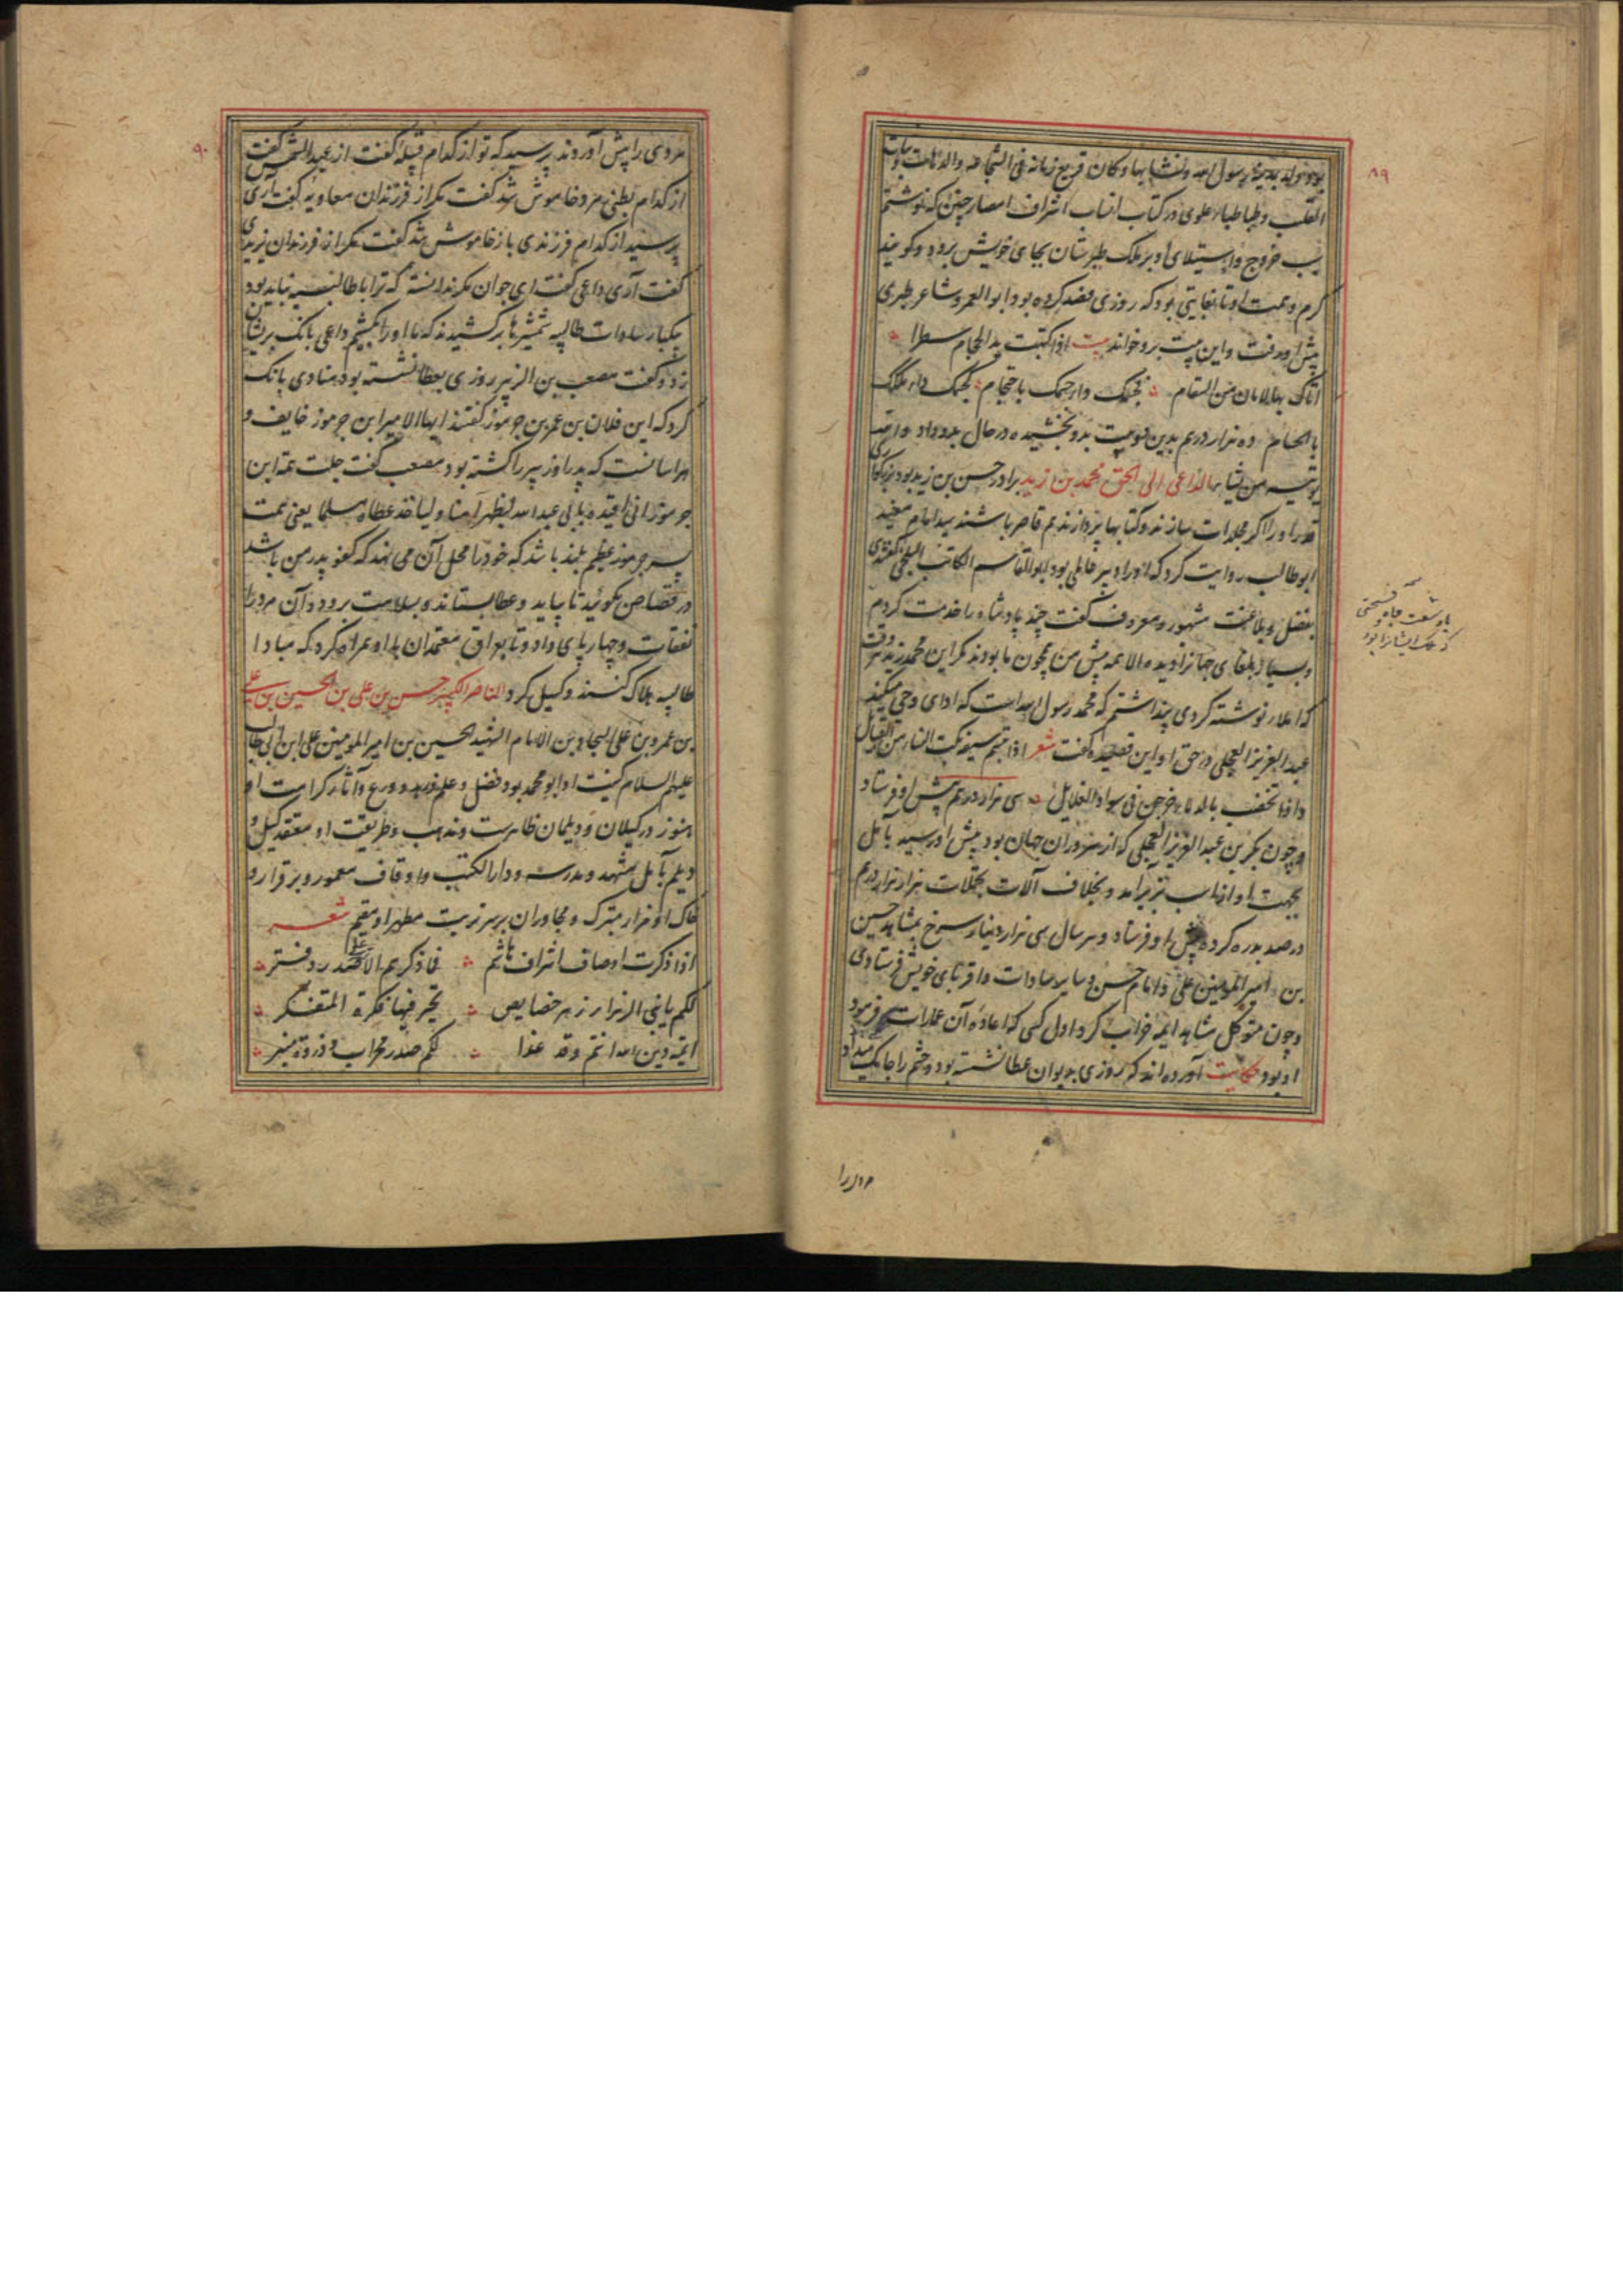 ۸۹
بود و مولد بمدینهٔ رسول الله و نشا بها و کان قریع زمانه فی الشجاعه و ثبات
القلب و طباطباء علوی در کتاب انساب اشراف امصار چنین که نوشتم
سبب خروج و استیلای او بر ملک طبرستان بجای خویش برود و گویند
کرم و همت او تا بغایتی بود که روزی فصد کرده بود ابو العمرو شاعر طبری
پیش او رفت و این بیت برو خواند بیت اذا کتبت ید الحجام سطرا
اتاک بها الامان من السقام
ده هزار درم بدین دو بیت بدو بخشیده در حال بدو داد
الداعی الی الحق محمد بن زید برادر حسن بن زید بود
قدر او را اگر مجلدات سازند و کتابها پردازند هم قاصر باشند سید امام
ابو طالب روایت کرد که او را دبیر فاضلی بود ابو القاسم الکاتب البلخی
بفضل و بلاغت مشهور و معروف گفت چند پادشاه را خدمت کردم
و بسیار بلغای جهان را دیده الا همه پیش من همچون ما بودند مگر این محمد زید هر وقت
که املا نوشته کردی پنداشتم که محمد رسول الله است که ادای وحی میکند
عبد العزیز العجلی در حق او این قصیده گفت شعر
سی هزار درم پیش او فرستاد
و چون بکر بن عبد العزیز العجلی که از سروران جهان بود پیش او رسید بآمل
بجهت او اسباب نزل براند و بخلاف آلات تجملات هزار هزار درم
در صد بدره کرده پیش او فرستاد و هر سال سی هزار دینار سرخ بمشاهد حسین
بن امیر المومنین علی و امام حسن و سایر سادات و اقربای خویش فرستادی
و چون متوکل مشاهد ایمه خراب کرد اول کسی که اعاده آن عمارات فرمود
او بود حکایت آورده اند که روزی بدیوان عطا نشسته بود و حشم را جامگی میداد
مردی را
۹۰
مردی را پیش آوردند پرسید که تو از کدام قبیلهٔ گفت از عبد الشمس گفت
از کدام بطنی مرد خاموش شد گفت مگر از فرزندان معاویه گفت آری
پرسید از کدام فرزندی باز خاموش شد گفت مگر از فرزندان یزیدی
گفت آری داعی گفت ای جوان مگر ندانسته که ترا با طالبیه نباید بود
یکبار سادات طالبیه شمشیرها برکشیدند که ما او را بکشیم داعی بانگ بریشان
زد و گفت مصعب بن الزبیر روزی بعطا نشسته بود منادی بانگ
کرد که این فلان بن عمر بن جرموز گفتند ایها الامیر ابن جرموز خایف و
هراسانست که پدر او زبیر را کشته بود مصعب گفت جلت همه ابن
جرموز انی اقیده بابی عبد الله لیظهر آمنا و لیاخذ عطاه مسلما یعنی همت
پسر جرموز عظیم بلند باشد که خود را محل آن می نهد که کفو پدر من باشد
در قصاص بگوئید تا بیاید و عطا بستاند و بسلامت برود و آن مرد را
نفقات و چهارپای داد و تا بعراق معتمدان با او همراه کرد که مبادا
طالبیه هلاک کنند وکیل کرد الناصر الکبیر حسن بن علی بن الحسین بن علی
بن عمرو بن علی السجاد بن الامام الشهید الحسین بن امیر المومنین علی ابن ابی طالب
علیهم السلام کنیت او ابو محمد بود فضل و علم و زهد و ورع و آثار کرامت او
هنوز در گیلان و دیلمان ظاهرست و مذهب و طریقت او معتقد گیل و
دیلم بآمل مشهد و مدرسه و دار الکتب و اوقاف معمور و برقرار و
خاک او مزار متبرک و مجاوران بر سر تربت مطهر او مقیم شعر
اذا ذکرت اوصاف اشراف هاشم فاذکرهم الاقصد در دفتر
لکم یابنی الزهرا زهر خصایص تحیر فیها فکرة المتفکر
ایمه دین الله انتم و قد غدا لکم صدر محراب و ذروة منبر